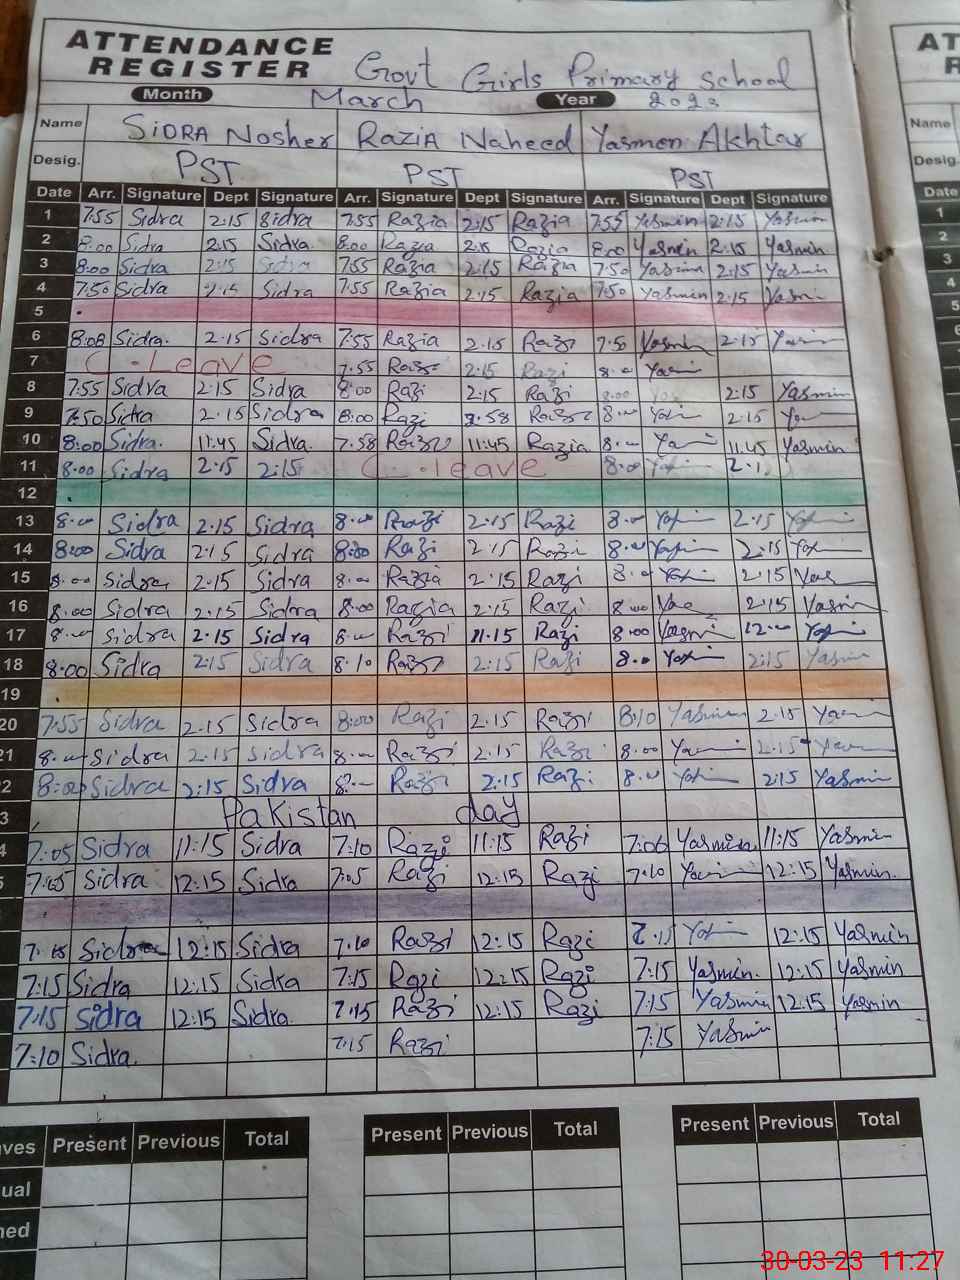 ATTENDANCE
REGISTER Govt Girls Primary School
Month March Year 2023
Name SIDRA Nosher RAZIA Naheed Yasmen Akhtar
Desig. PST PST PST
Date Arr. Signature Dept Signature Arr. Signature Dept Signature Arr. Signature Dept Signature
1 7:55 Sidra 2:15 Sidra 7:55 Razia 2:15 Razia 7:55 Yasmin 2:15 Yasmin
2 8:00 Sidra 2:15 Sidra. 8:00 Razia 2:15 Razia 8:00 Yasmin 2:15 Yasmin.
3 8:00 Sidra 2:15 Sidra 7:55 Razia 2:15 Razia 7:50 Yasmin 2:15 Yasmin
4 7:50 Sidra 2:15 Sidra 7:55 Razia 2:15 Razia 7:50 Yasmin 2:15 Yasmin
5
6 8:08 Sidra. 2:15 Sidra 7:55 Razia 2:15 Razi 7:50 Yasmin 2:15
7 C.Leave 7:55 Razi 2:15 Razi 8:00
8 7:55 Sidra 2:15 Sidra 8:00 Razi 2:15 Razi 8:00 2:15 Yasmin
9 7:50 Sidra 2:15 Sidra 8:00 Razi Razi 8:00 2:15
10 8:00 Sidra. 11:45 Sidra. 7:58 Razi 11:45 Razia 8:00 11:45 Yasmin
11 8:00 Sidra 2:15 2:15 C.leave 8:00
12
13 8:00 Sidra 2:15 Sidra 8:00 Razi 2:15 Razi 8:00 2:15
14 8:00 Sidra 2:15 Sidra 8:00 Razi 2:15 Razi 8:00 2:15
15 8:00 Sidra 2:15 Sidra 8:00 Razia 2:15 Razi 8:00 2:15
16 8:00 Sidra 2:15 Sidra 8:00 Razia 2:15 Razi 8:00 2:15 Yasmin
17 8:00 Sidra 2:15 Sidra 8:00 Razi 11:15 Razi 8:00 Yasmin 12:00
18 8:00 Sidra 2:15 Sidra 8:10 Razi 2:15 Razi 8:00 2:15 Yasmin
19
20 7:55 Sidra 2:15 Sidra 8:00 Razi 2:15 Razi 8:10 Yasmin 2:15
21 8:00 Sidra 2:15 Sidra 8:00 Razi 2:15 Razi 8:00 2:15
2 8:00 Sidra 2:15 Sidra 8:00 Razi 2:15 Razi 8:00 2:15 Yasmin
3 Pakistan day
4 7:05 Sidra 11:15 Sidra 7:10 Razi 11:15 Razi 7:06 Yasmin 11:15 Yasmin
5 7:05 Sidra 12:15 Sidra 7:05 Razi 12:15 Razi 7:10 12:15 Yasmin.
Sidra 12:15 Sidra 7:10 Razi 12:15 Razi 7:15 12:15 Yasmin
7:15 Sidra 12:15 Sidra 7:15 Razi 12:15 Razi 7:15 Yasmin. 12:15 Yasmin
7:15 Sidra 12:15 Sidra 7:15 Razi 12:15 Razi 7:15 Yasmin 12:15 Yasmin
7:10 Sidra. 7:15 Razi 7:15 Yasmin
aves Present Previous Total Present Previous Total Present Previous Total
ual
ned
AT
R
Name
Desig.
Date
1
2
3
4
5
6
7
8
9
10
11
30-03-23 11:27